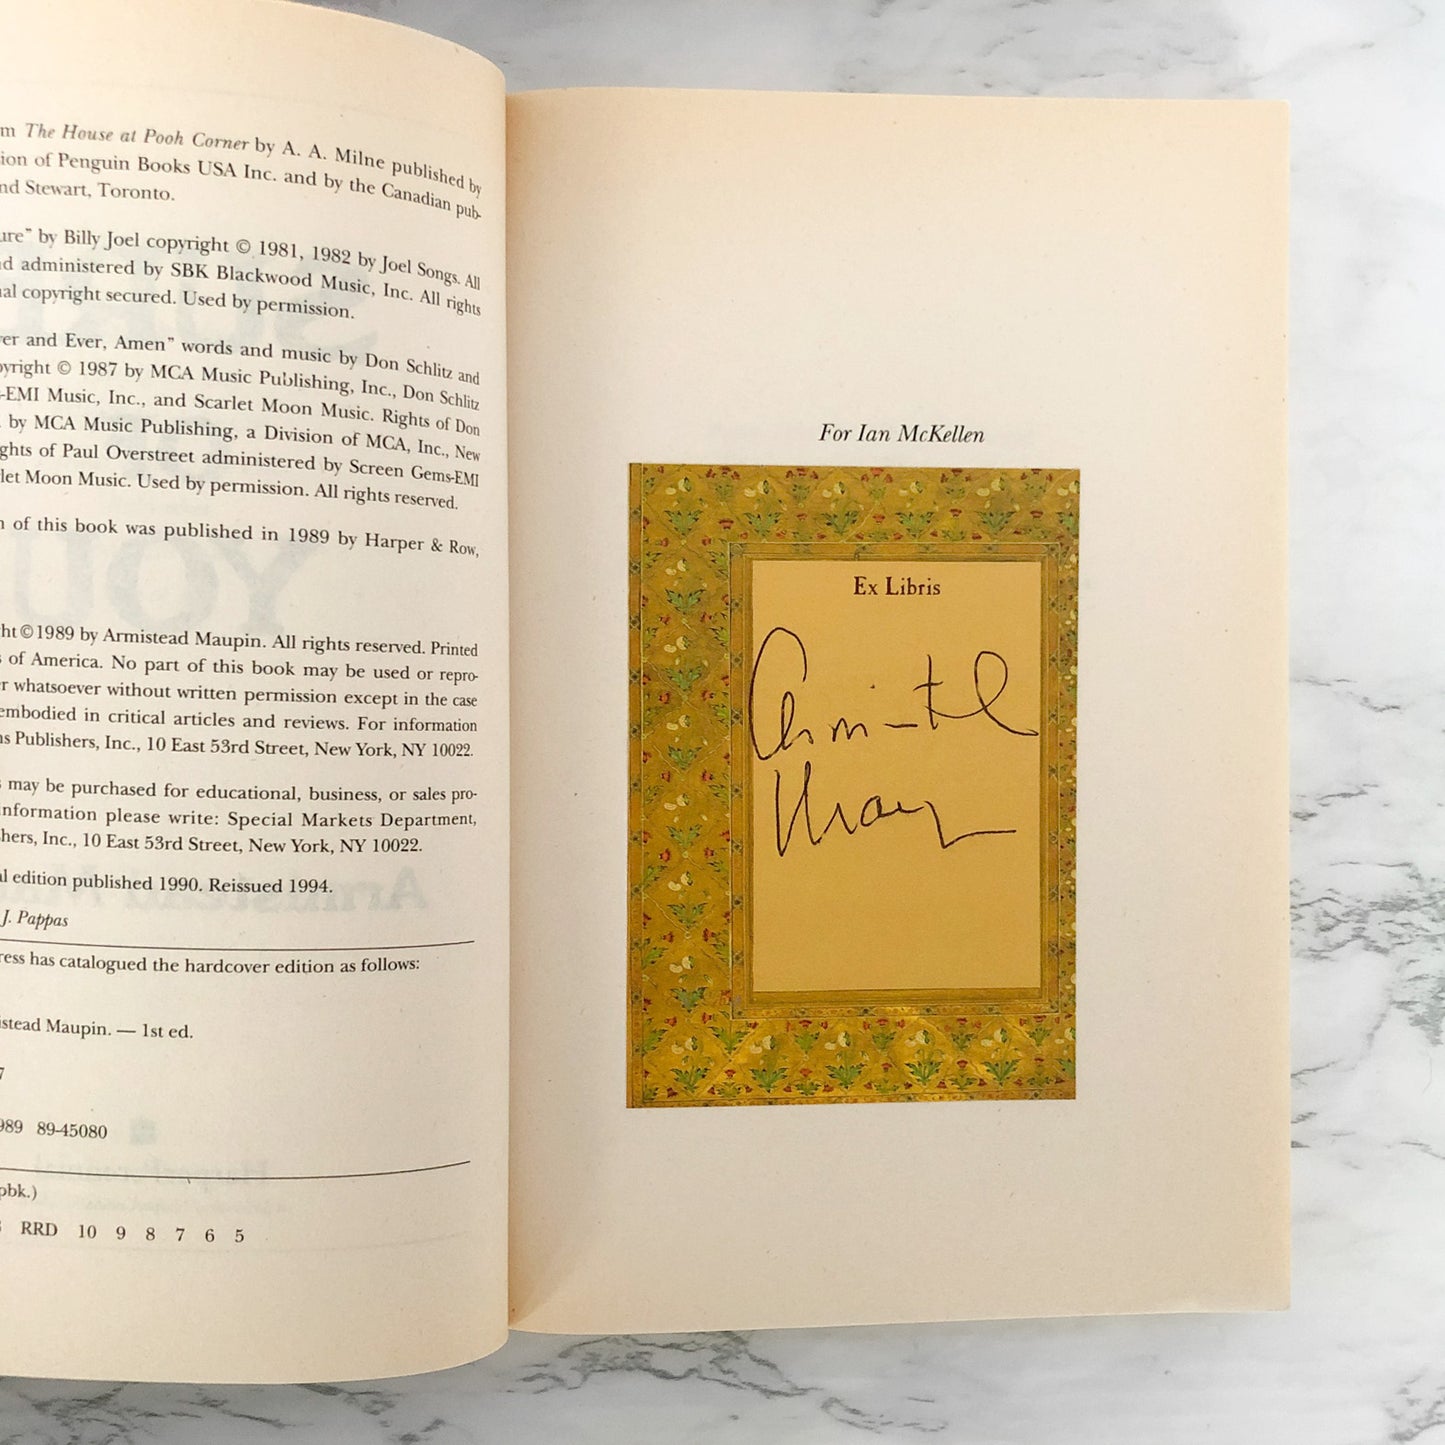 m The House at Pooh Corner by A. A. Milne published by
ion of Penguin Books USA Inc. and by the Canadian pub-
nd Stewart, Toronto.
ure” by Billy Joel copyright © 1981, 1982 by Joel Songs. All
d administered by SBK Blackwood Music, Inc. All rights
nal copyright secured. Used by permission.
er and Ever, Amen” words and music by Don Schlitz and
pyright © 1987 by MCA Music Publishing, Inc., Don Schlitz
s-EMI Music, Inc., and Scarlet Moon Music. Rights of Don
by MCA Music Publishing, a Division of MCA, Inc., New
ghts of Paul Overstreet administered by Screen Gems-EMI
rlet Moon Music. Used by permission. All rights reserved.
n of this book was published in 1989 by Harper & Row,
ht © 1989 by Armistead Maupin. All rights reserved. Printed
s of America. No part of this book may be used or repro-
r whatsoever without written permission except in the case
embodied in critical articles and reviews. For information
ns Publishers, Inc., 10 East 53rd Street, New York, NY 10022.
s may be purchased for educational, business, or sales pro-
information please write: Special Markets Department,
shers, Inc., 10 East 53rd Street, New York, NY 10022.
al edition published 1990. Reissued 1994.
J. Pappas
ress has catalogued the hardcover edition as follows:
istead Maupin. — 1st ed.
7
989 89-45080
pbk.)
RRD 10 9 8 7 6 5
For Ian McKellen
Ex Libris
Armistead
Maupin